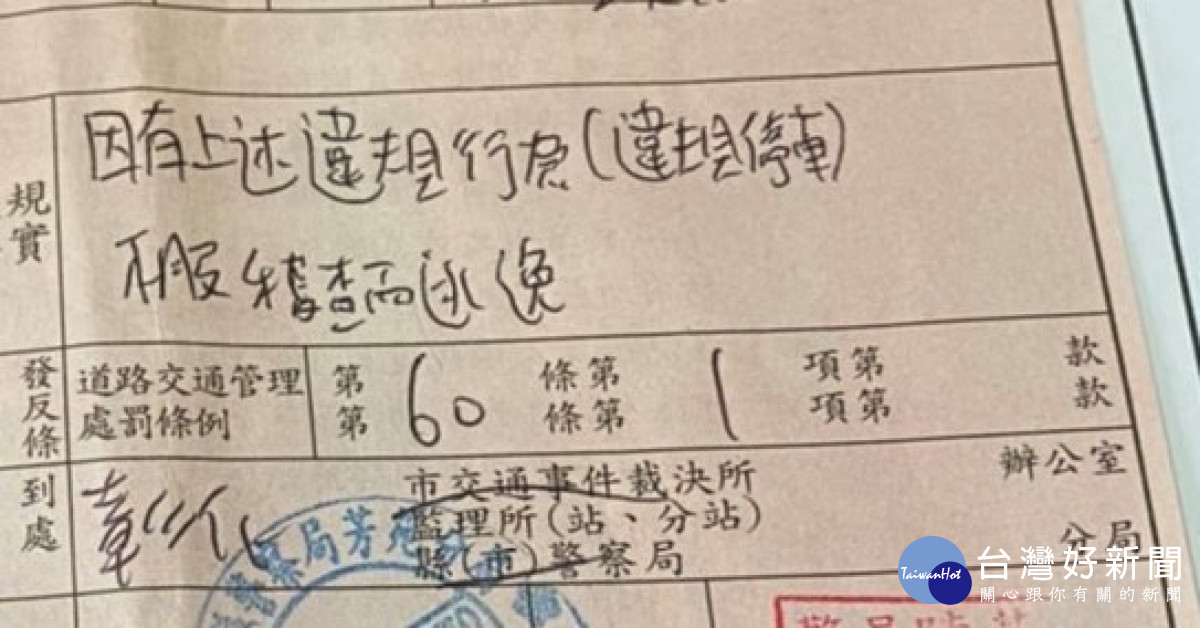 規實
因有上述違規行為(違規停車)
不服稽查而逃逸
發反條
道路交通管理處罰條例
第 60 條第 1 項第 款
第 條第 項第 款
到處
彰化
市交通事件裁決所
監理所(站、分站)
縣(市)警察局
辦公室
分局
警察局芳苑
TaiwanHot
台灣好新聞
關心跟你有關的新聞